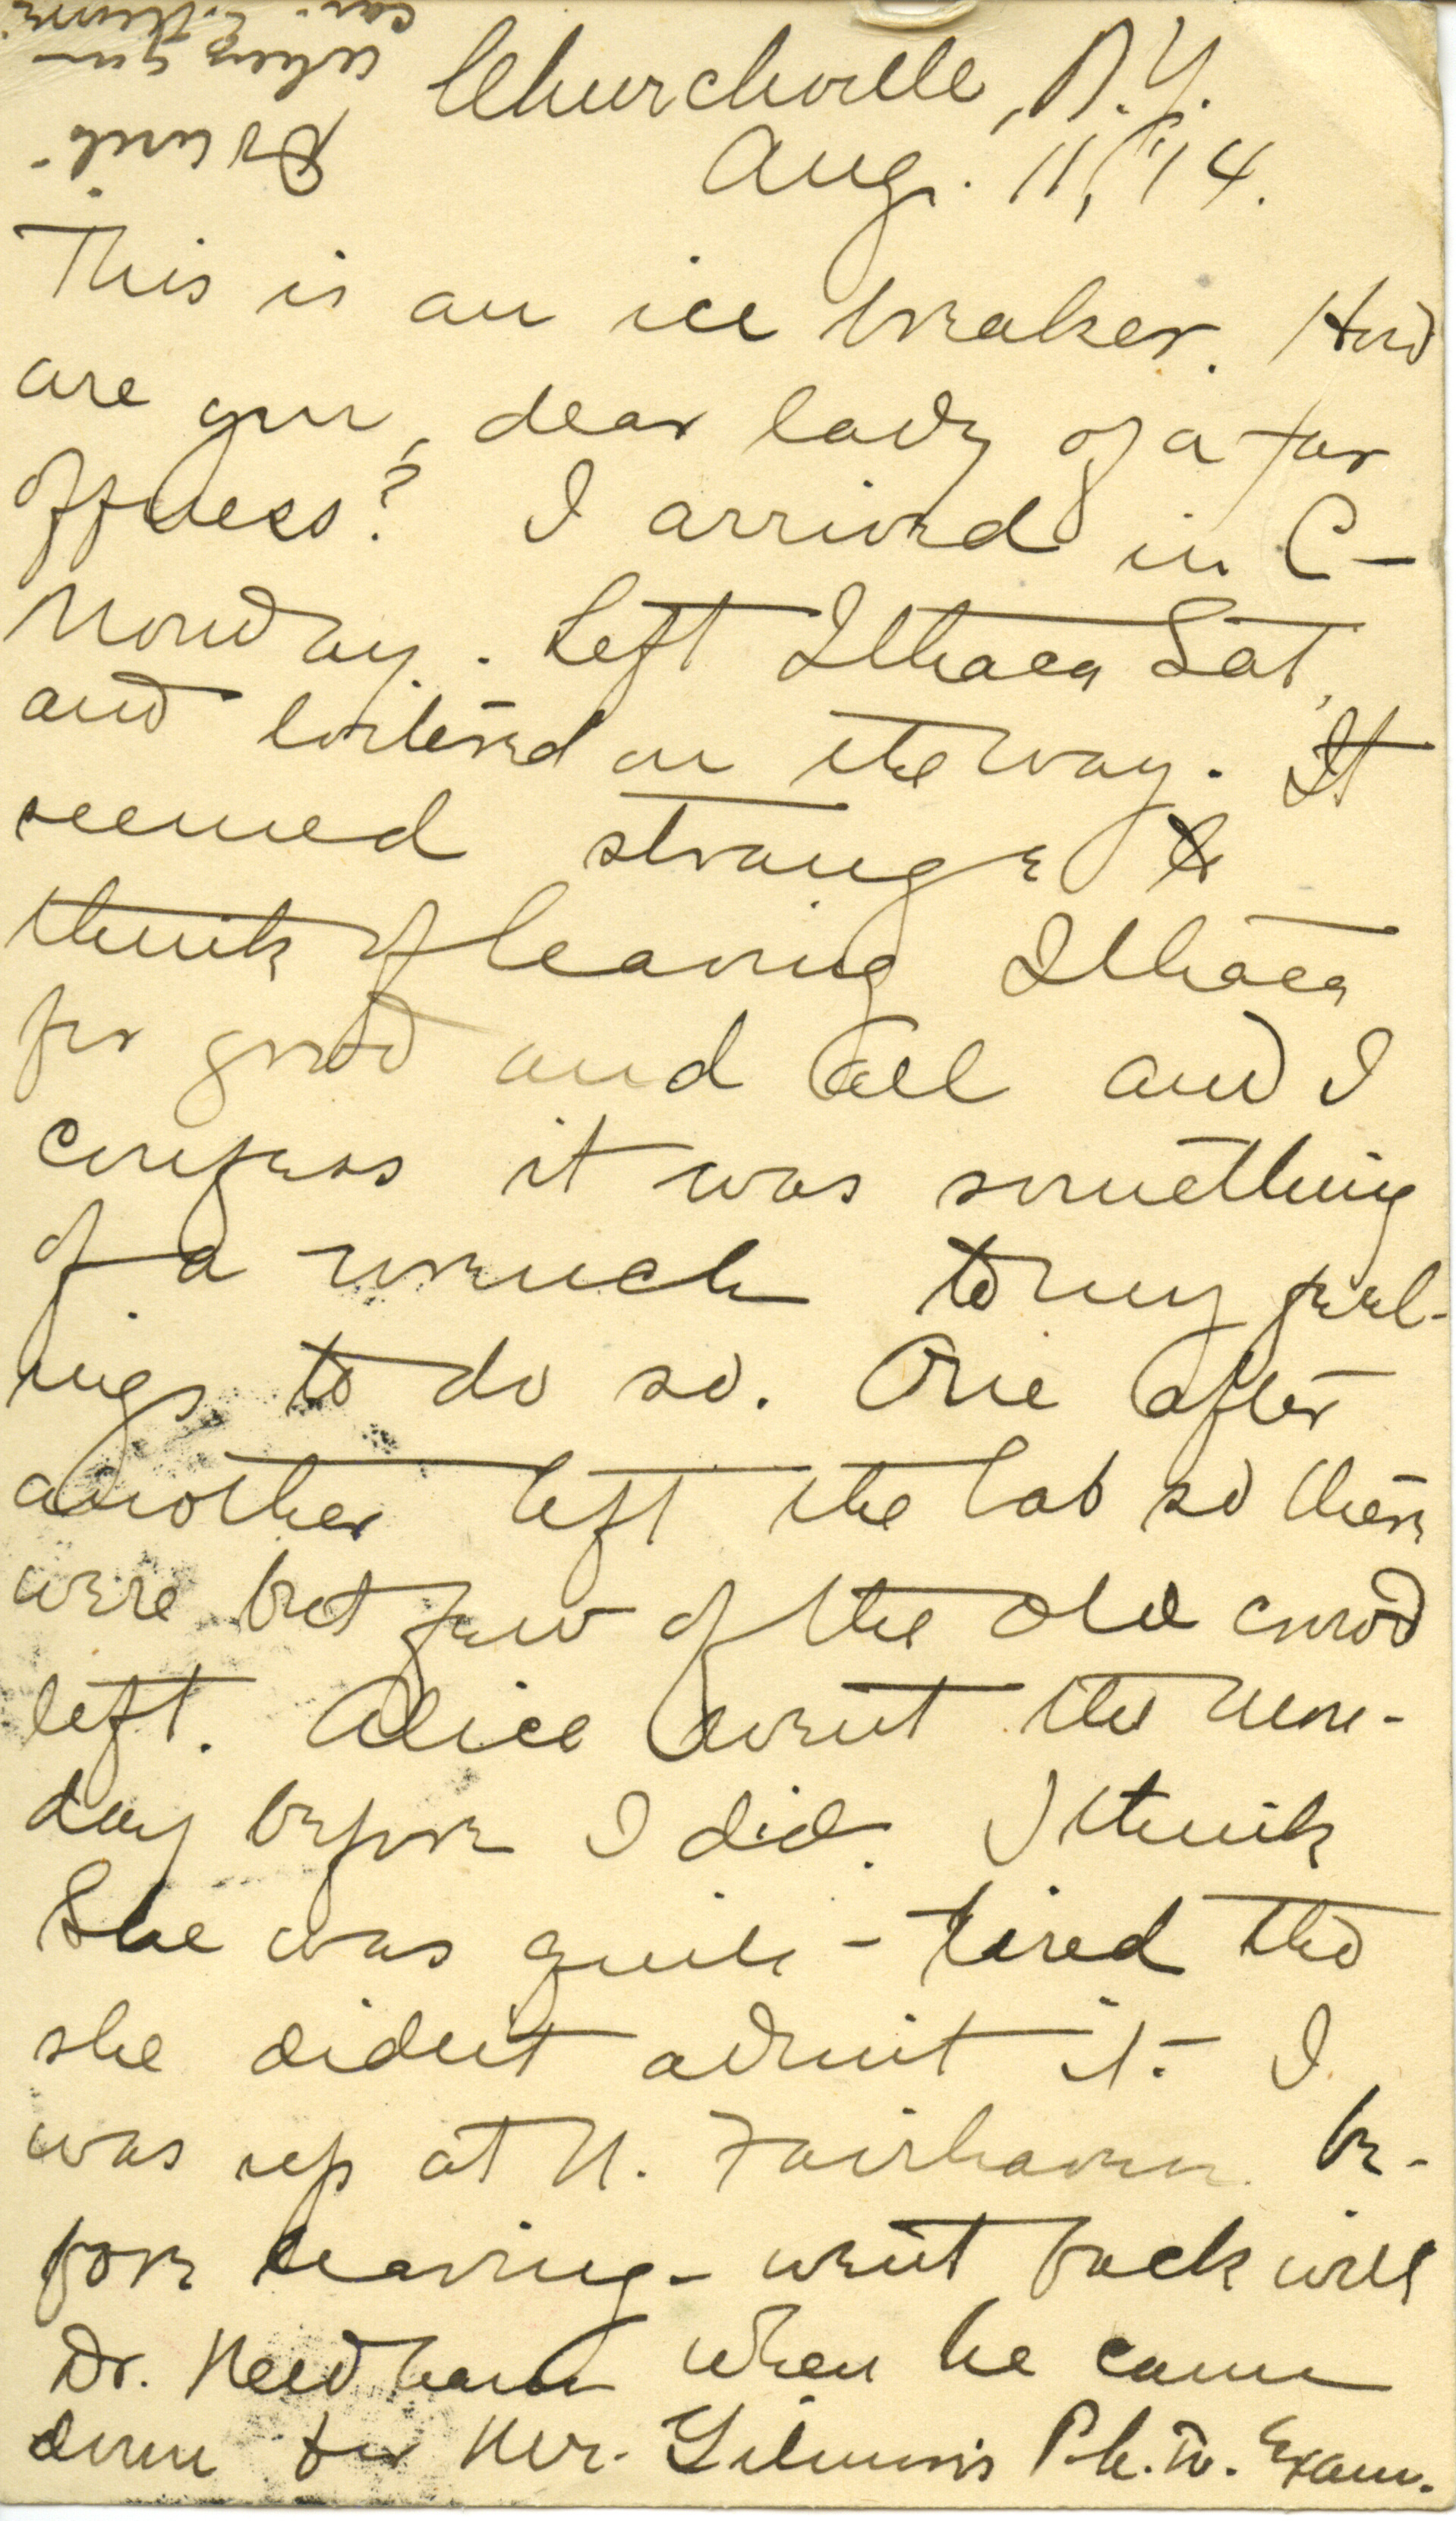 Churchville, N.Y.
Aug. 11, '14.
This is an ice breaker. How
are you, dear lady of a far
offness? I arrived in C-
Monday. Left Ithaca Sat.
and loitered on the way. It
seemed strange to
think of leaving Ithaca
for good and all and I
confess it was something
of a wrench to my feel-
ings to do so. One after
another left the lab so there
were but few of the old crowd
left. Alice went the Mon-
day before I did. I think
She was quite tired tho
she didn't admit it. I
was up at N. Fairhaven be-
fore leaving - went back with
Dr. Needham when he came
down for Mr. Gilmore's Ph.D. Exam.
when you
can.